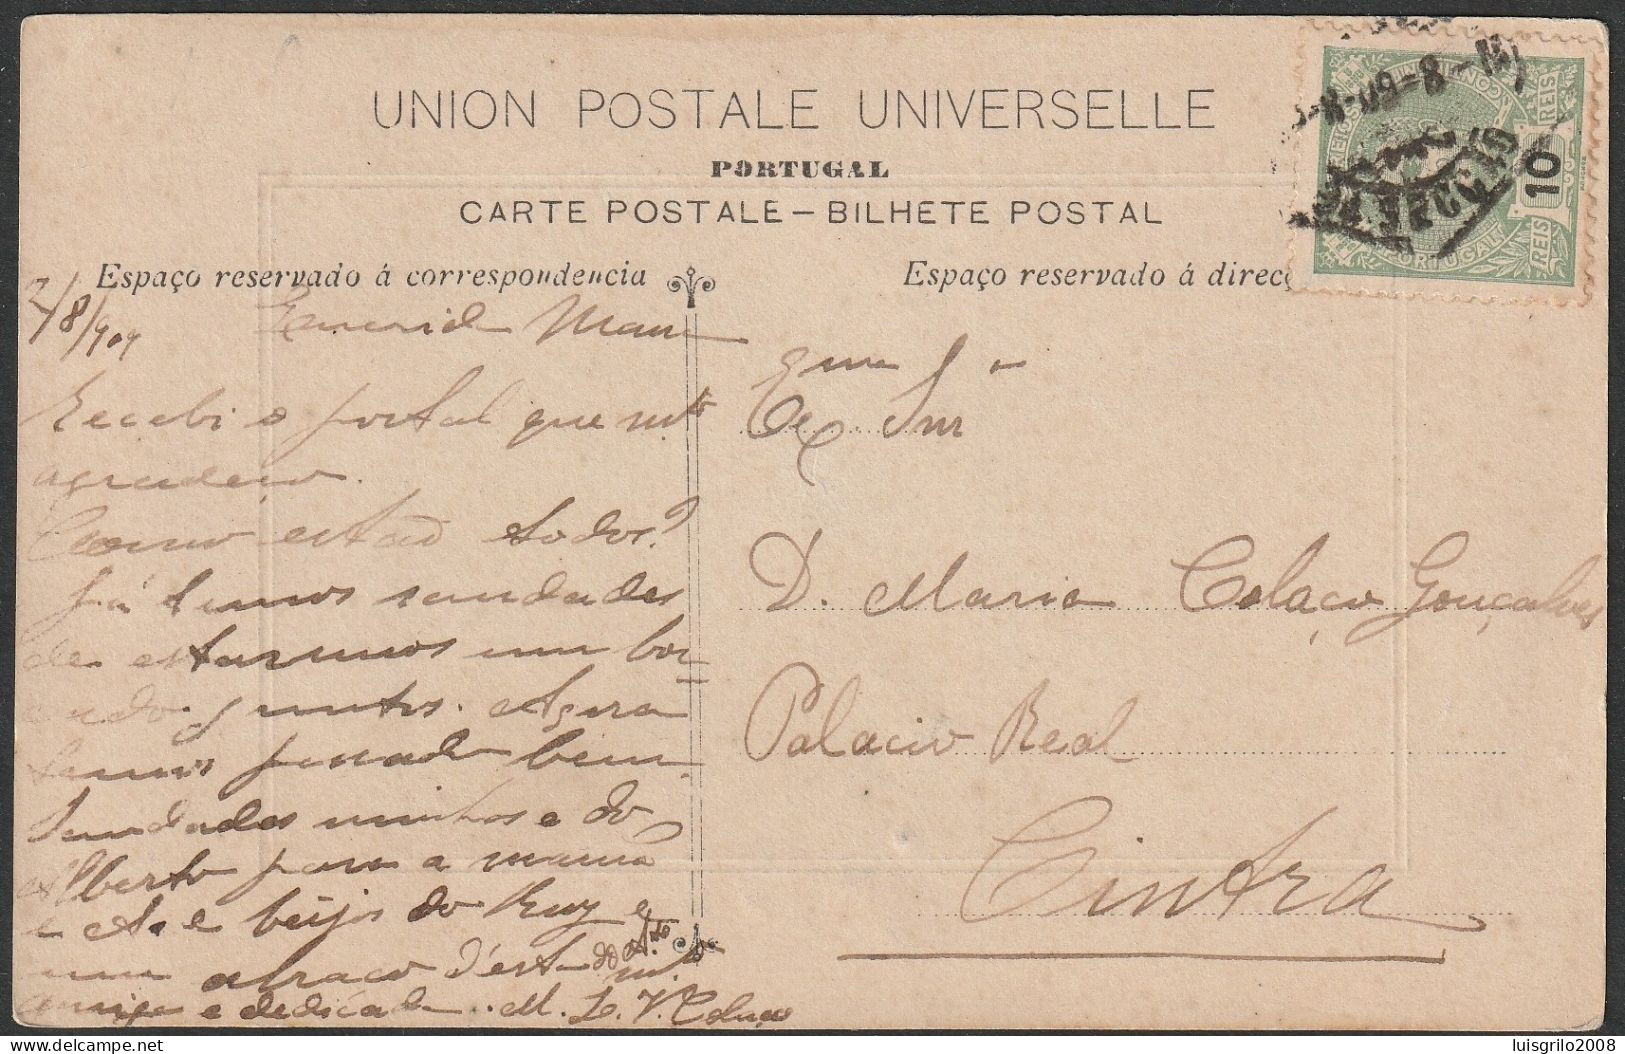 UNION POSTALE UNIVERSELLE
PORTUGAL
CARTE POSTALE – BILHETE POSTAL
Espaço reservado á correspondencia
Espaço reservado á direcç
CONTINENTE
PORTUGAL
REIS
REIS
10
8-09-8
2/8/909
Querida
Recebi o postal que mto
agradeço.
Como estão todos?
Já temos saudades
de estarmos um bo-
cado juntos. Agora
temos passado bem.
Saudades minhas e do
Alberto para a mamã
e A. e beijos do Ruy e
do Ato
um abraço d'esta mto
amiga e dedicada. M. L. V. Colaço
Exma Snra
D. Maria Colaço Gonçalves
Palacio Real
Cintra
delcampe.net
luisgrilo2008